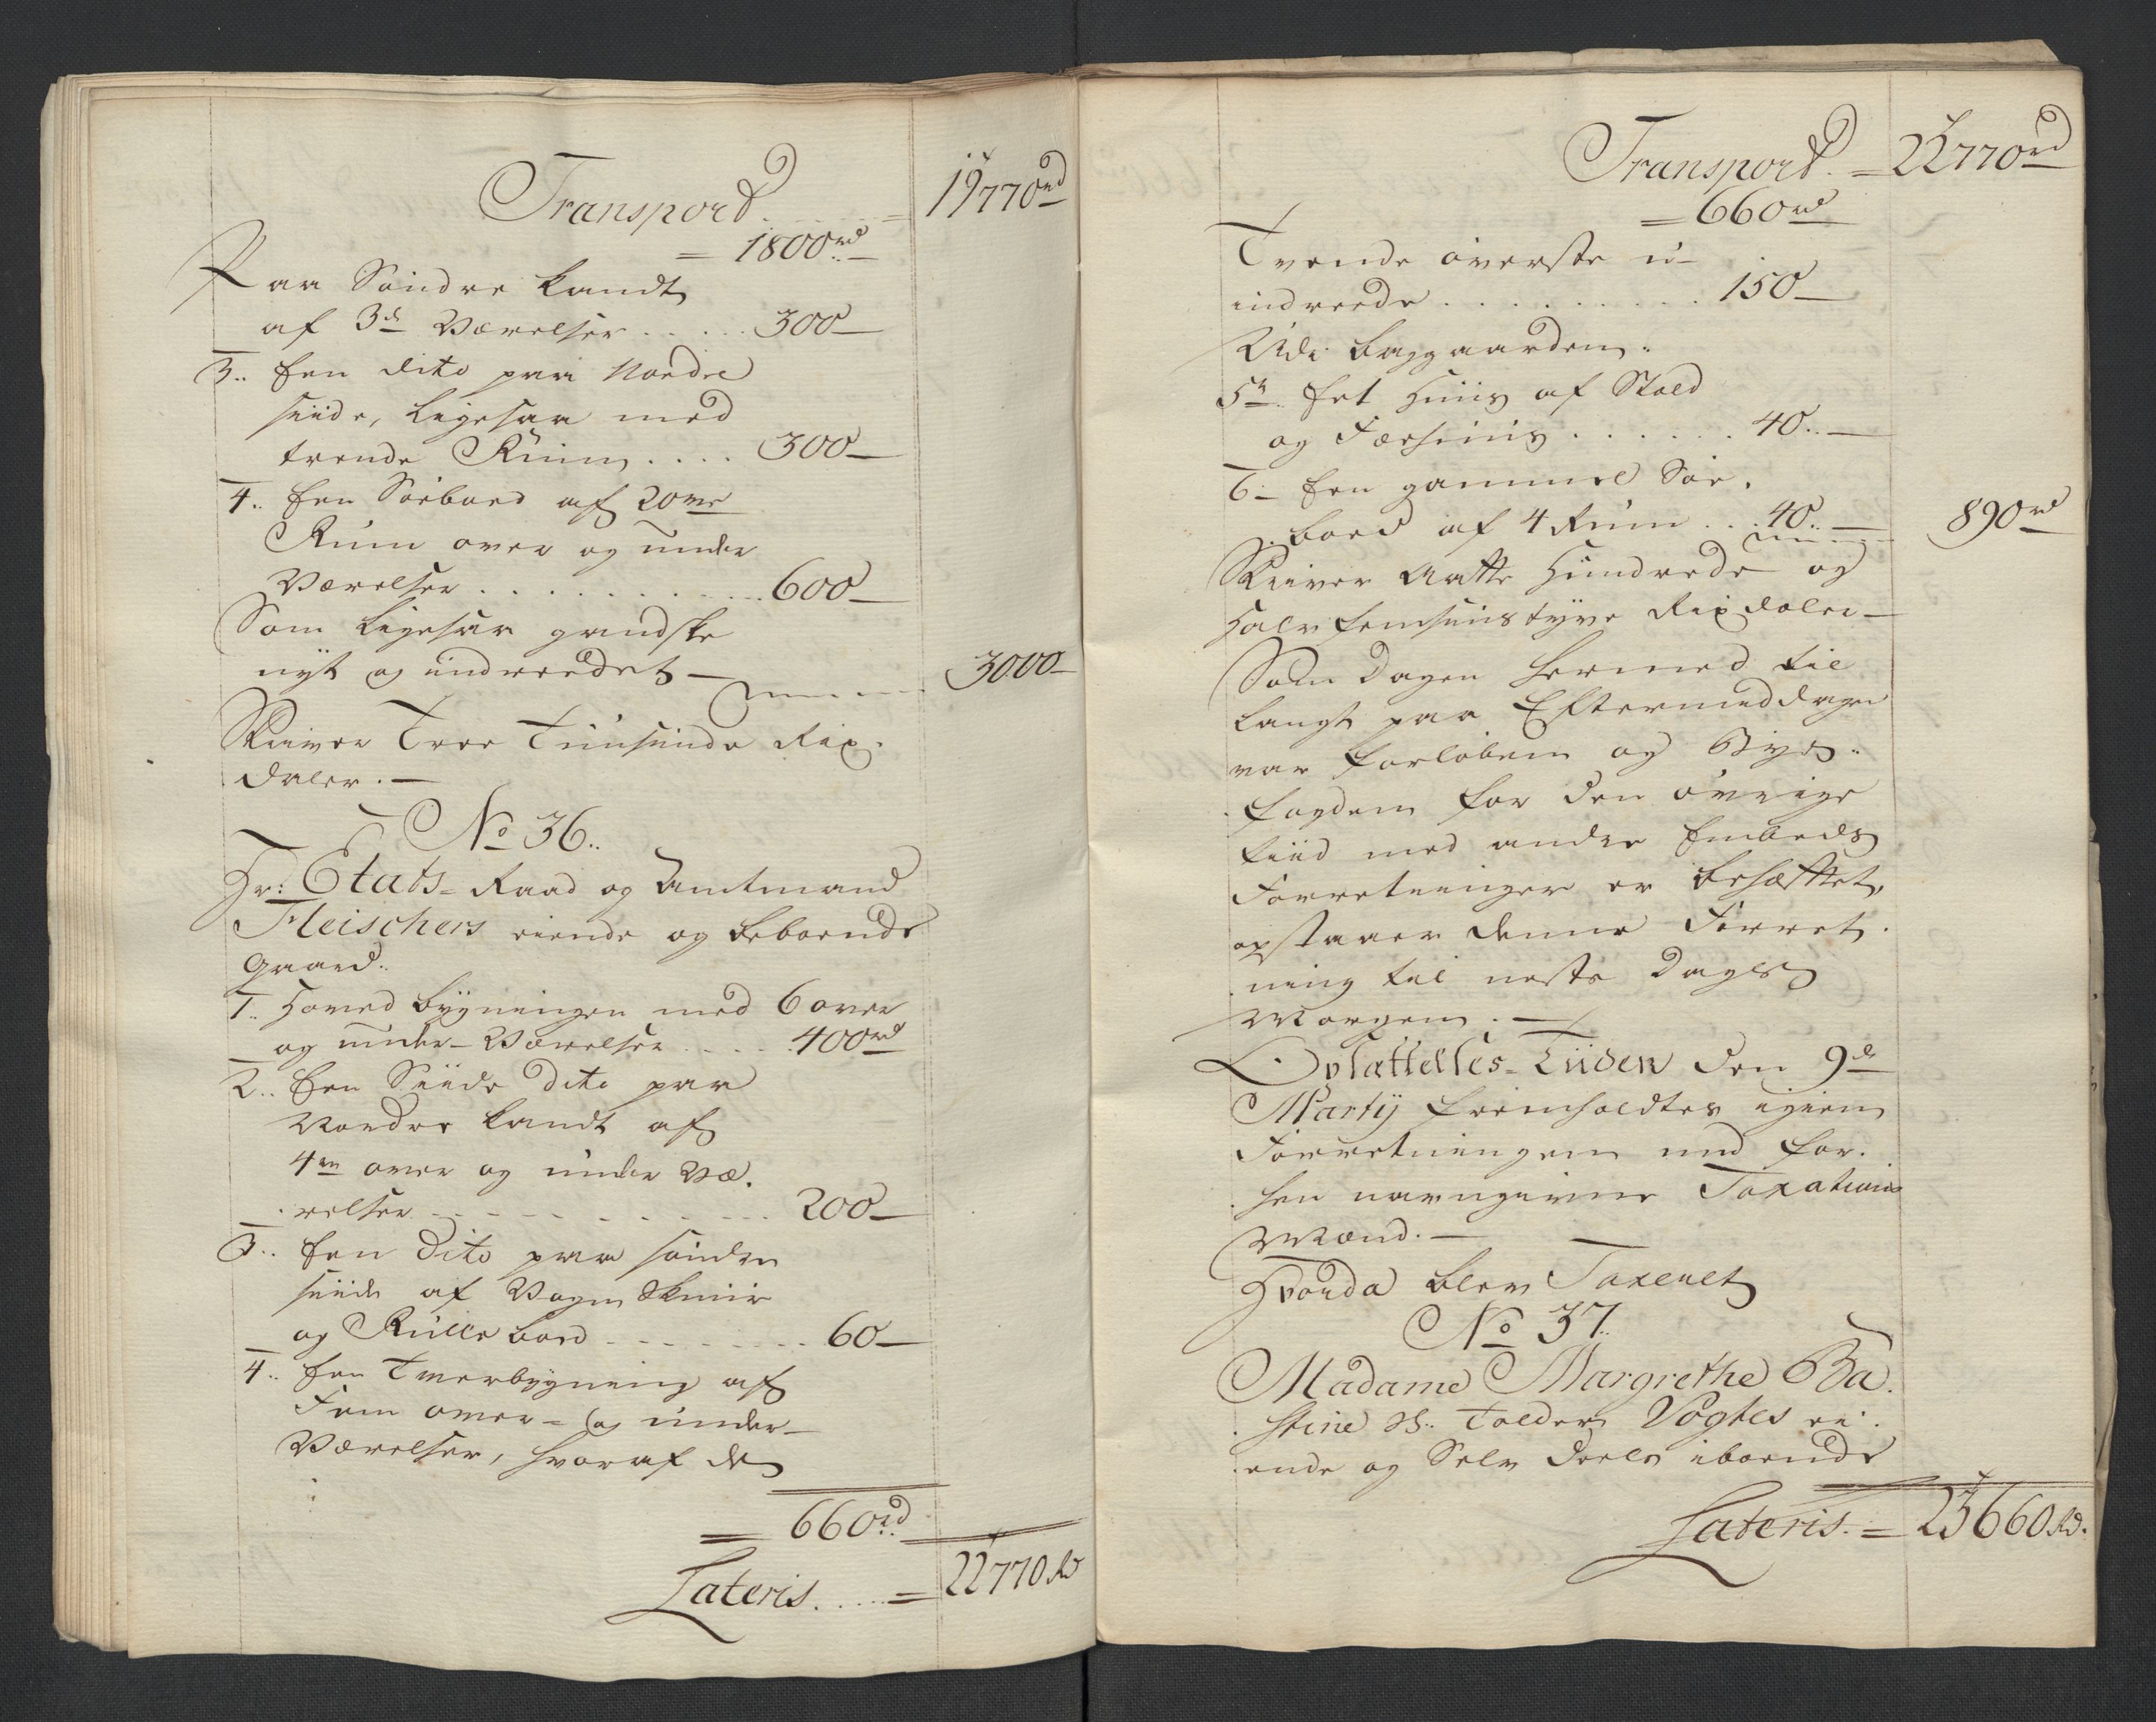 Transport. . . . . = 19770rd
= 1800rd
Paa Søndre kandt
af 3de Værelser . . . . . 300 —
3.. Een dito paa Nordre
siide, ligesaa med
trende Rum . . . . 300 —
4.. Een Søeboed af 20ve
Rum over og under
Værelser . . . . . . . . . . . 600 —
Som ligesaa gandske
nÿt og indreedet — 3000 —
Skriver Tree Tuusinde Rix-
daler. —
No 36..
Hr: Etats-Raad og Amtmand
Fleischers eiende og beboende
Gaard..
1.. Hoved bÿgningen med 6 over
og under-Værelser . . . . . 400rd
2.. Een Siide dito paa
Nordre kandt af
4re over og under Væ-
relser . . . . . . . . . . . 200 —
3.. Een dito paa søndre
siide af Vogn Skuur
og Rulle boed . . . . . . . . 60 —
4.. Een Tverbÿgning af
Fem over- og under-
Værelser, hvoraf de
= 660rd
Lateris. . . . . = 22770 Rd
Transport. = 22770rd
= 660rd
Tvende øverste u-
indreede . . . . . . . . . 150 —
Udi baggaarden.
5te Eet Huus af Stald
og Fæehuus . . . . . . . 40.. —
6 — Een gammel Søe-
boed af 4 Rum . . . 40.. — 890rd
Skriver Aatte Hundrede og
Halvfemsinstÿve Rixdaler —
Som Dagen hermed til
langt paa Eftermiddagen
var forløben og Bÿe-
fogden for den øvrige
tiid med andre Embeds
Forretninger er behæfftet,
opstaaer denne Forret-
ning til neste Dags
Morgen. —
Opsættelses-Tiiden den 9de
Martÿ fremholdtes igien
Forretningen med for-
hen navngivne Taxations
Mænd. —
Hvorda blev Taxeret
No 37..
Madame Margrethe Ba-
stine S. Tolder Vogtes ei-
ende og Selv deels iboende
Lateris. = 23660 Rd.